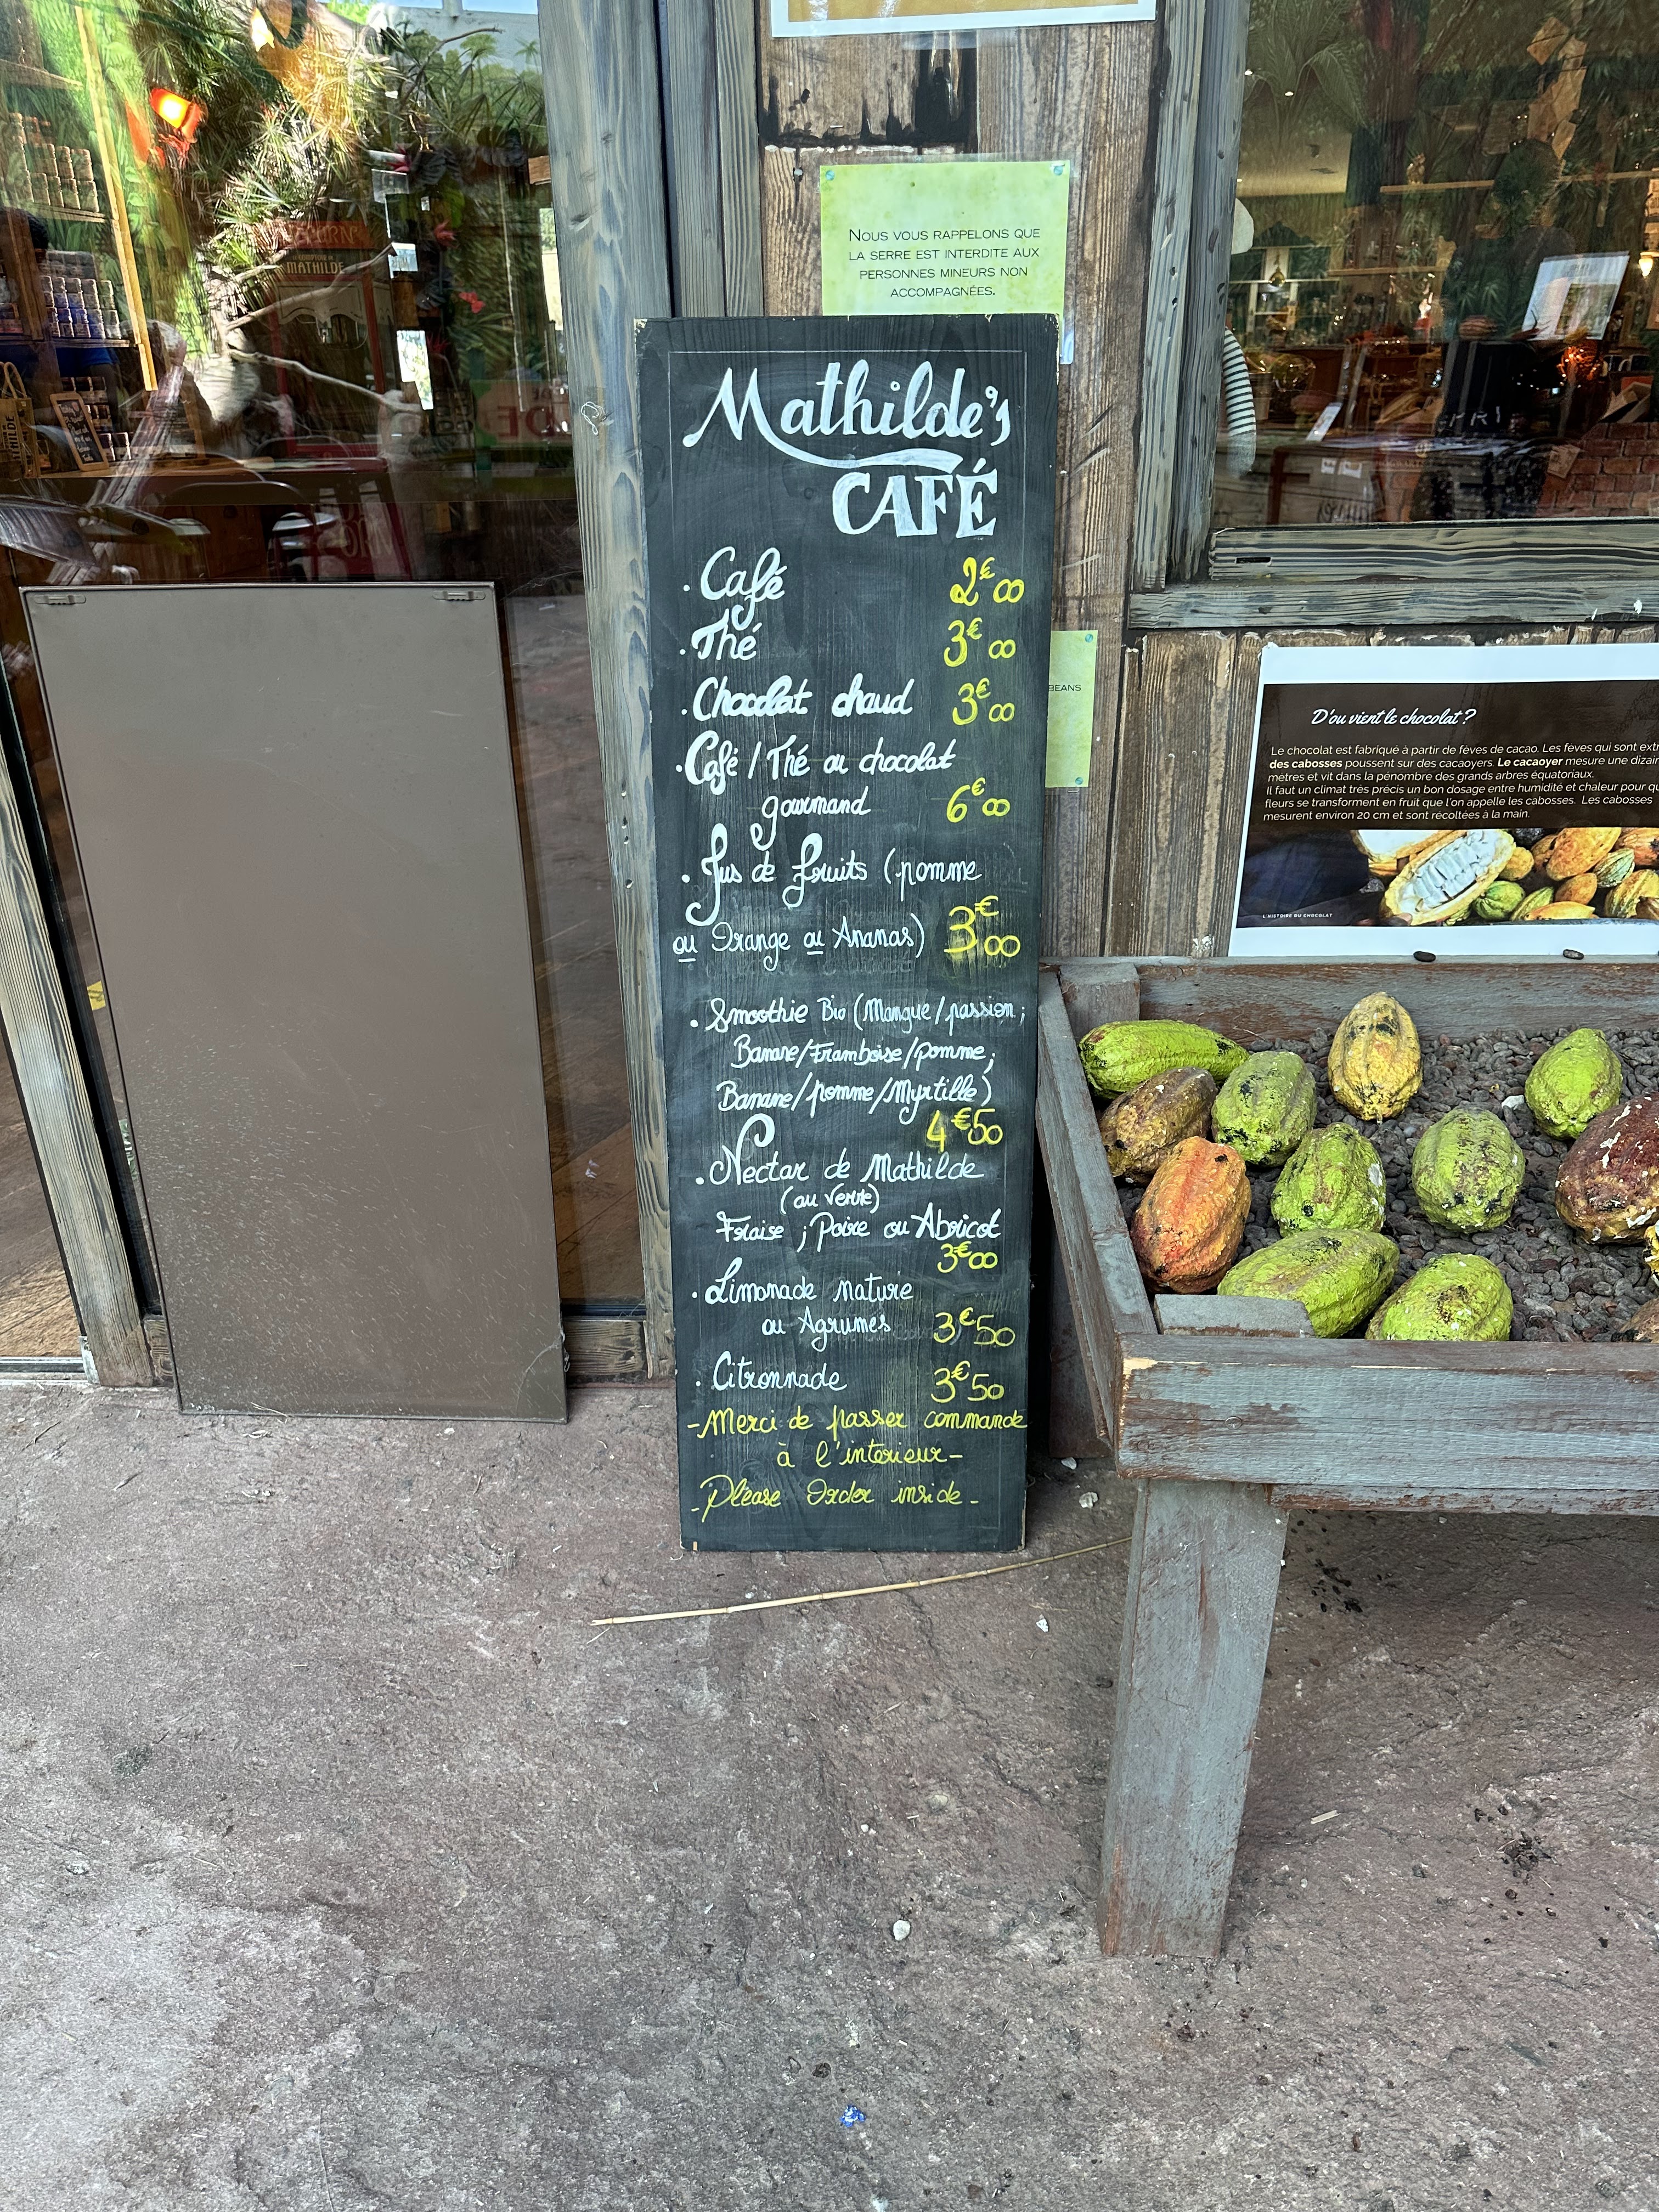 NOUS VOUS RAPPELONS QUE
LA SERRE EST INTERDITE AUX
PERSONNES MINEURS NON
ACCOMPAGNÉES.
Mathilde's
CAFÉ
. Café 2€00
. Thé 3€00
. Chocolat chaud 3€00
. Café / Thé ou chocolat
gourmand 6€00
. Jus de fruits (pomme
ou Orange ou Ananas) 3€00
. Smoothie Bio (Mangue/passion;
Banane/Framboise/pomme;
Banane/pomme/Myrtille)
4€50
. Nectar de Mathilde
(au verre)
Fraise ; Poire ou Abricot
3€00
. Limonade nature
ou Agrumes 3€50
. Citronnade 3€50
- Merci de passer commande
à l'interieur -
- Please Order inside -
BEANS
D'ou vient le chocolat ?
Le chocolat est fabriqué à partir de fèves de cacao. Les fèves qui sont extr
des cabosses poussent sur des cacaoyers. Le cacaoyer mesure une dizai
mètres et vit dans la pénombre des grands arbres équatoriaux.
Il faut un climat très précis un bon dosage entre humidité et chaleur pour qu
fleurs se transforment en fruit que l'on appelle les cabosses. Les cabosses
mesurent environ 20 cm et sont récoltées à la main.
L'HISTOIRE DU CHOCOLAT
MATHILDE